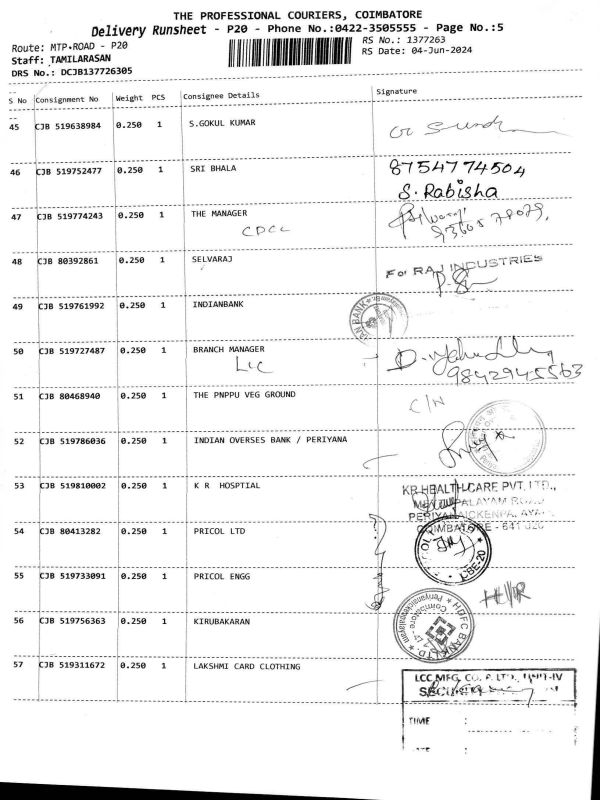 THE PROFESSIONAL COURIERS, COIMBATORE
Delivery Runsheet - P20 - Phone No.:0422-3505555 - Page No.:5
Route: MTP-ROAD - P20
RS No.: 1377263
Staff: TAMILARASAN
RS Date: 04-Jun-2024
DRS No.: DCJB137726305
S No Consignment No Weight PCS Consignee Details Signature
45 CJB 519638984 0.250 1 S.GOKUL KUMAR
46 CJB 519752477 0.250 1 SRI BHALA 8754774504
S. Rabisha
47 CJB 519774243 0.250 1 THE MANAGER
CDCC
48 CJB 80392861 0.250 1 SELVARAJ For RAJ INDUSTRIES
49 CJB 519761992 0.250 1 INDIANBANK
50 CJB 519727487 0.250 1 BRANCH MANAGER
LIC 9842945563
51 CJB 80468940 0.250 1 THE PNPPU VEG GROUND C/N
52 CJB 519786036 0.250 1 INDIAN OVERSES BANK / PERIYANA
53 CJB 519810002 0.250 1 K R HOSPTIAL KR HEALTHCARE PVT. LTD.,
COIMBATORE - 641 020
54 CJB 80413282 0.250 1 PRICOL LTD
CBE-20
55 CJB 519733091 0.250 1 PRICOL ENGG
56 CJB 519756363 0.250 1 KIRUBAKARAN
HDFC BANK LTD
Coimbatore
57 CJB 519311672 0.250 1 LAKSHMI CARD CLOTHING
LCC MFG. CO. P. LTD., UNIT-IV
TIME :